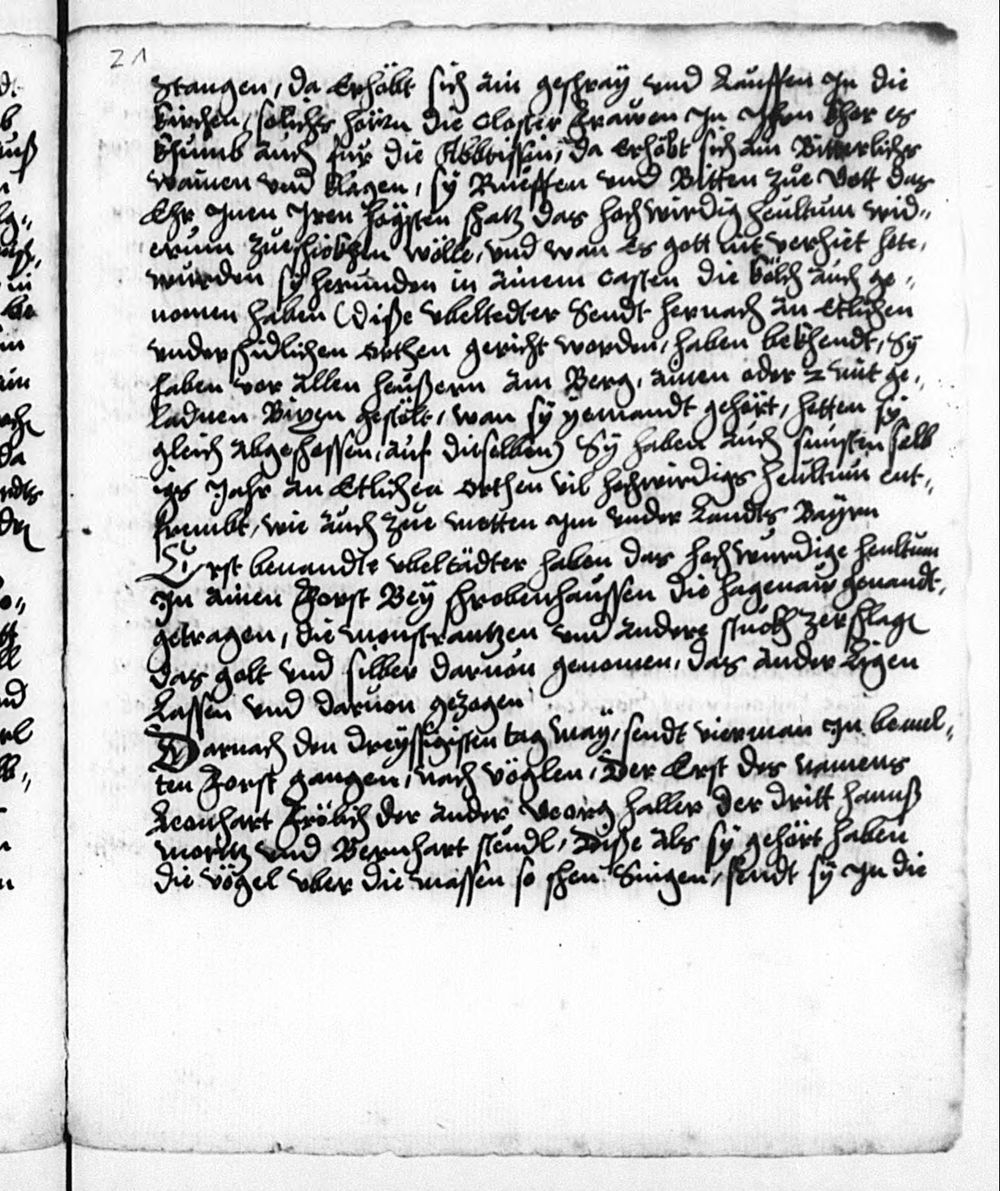 21
Stangen, da Erhöbt sich ain geschray und Lauffen In die
Kirchen, solichs hörn die Closter Frawen In Ihrn Khor es
Khumb auch für die Abbtissin, da Erhöbt sich ain Bitterlichs
wainen vnd klagen, sy Rueffen vnd Bitten zue Gott das
Ehr Inen Iren höysten schatz das hochwirdig heultum wid„
erum zueschickhen wölle, vnd wan Es gott nit verhiet hete,
wurden sy herunden in ainem Casten die kölch auch ge„
nomen haben (dise vbeltedter Sendt hernach än Etlichen
vnderschidlichen orthen gericht worden, haben bekhendt, Sy
haben vor allen heüßern äm Berg, ainen oder 2 mit ge„
ladnen Bixen gestölt, wan sy yemandt gehört, hetten sy
gleich abgeschossen, auf dieselben) Sy haben auch sunst in selb
igs Jahr än Etlichen orthen vil hochwirdigs heultum ent„
frembt, wie äuch zue metten Im vnder Landts Bayrn
Erst benandte vbeltädter haben das hochwürdige heultum
In ainen Forst Bey Schrobenhaussen die hagenaw genandt,
getragen, die monstrantzen vnd andere stuckh zerschlagen
das golt vnd silber daruon genomen, das ander Ligen
Lassen vnd daruon gezogen
Darnach den dreyssigisten tag may, sendt vierman In bemel„
ten Forst gangen, nach vöglen, Der Erst des namens
Leonhart Frölich der ander Georg haller der dritt hannß
moritz vnd Bernhart stendl, Diße als sy gehört haben
die vögel vber die massen so schen Singen, sendt sy In die